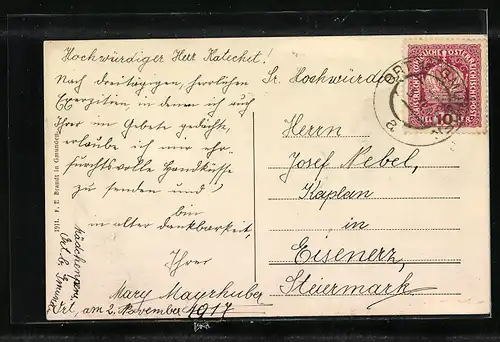 Hochwürdiger Herr Katechet!
Nach dreitägigen, herrlichen
Exerzitien in denen ich auch
Ihrer im Gebete gedachte,
erlaube ich mir ehr-
furchtsvolle Handküsse
zu senden und
bin
in alter Dankbarkeit,
Ihrer
Mary Mayrhuber
Ort, am 2. November 1917
Mädchenpens.
Ort b. Gmunden
1911. F. E. Brandt in Gmunden
Sr. Hochwürden
Herrn
Josef Nebel,
Kaplan
in
Eisenerz,
Steiermark.
KAISERLICHE KÖNIGLICHE ÖSTERREICHISCHE POST
10
ORT
a